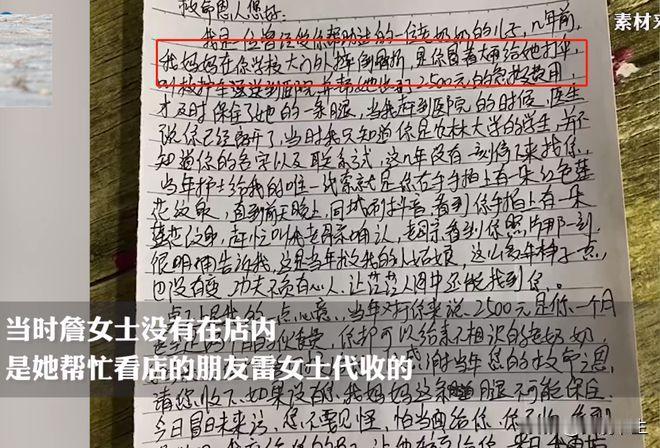 救命恩人您好：
素材来
我是一位曾经受你帮助过的一位老奶奶的儿子，几年前，
我妈妈在你学校大门外摔倒骨折，是你冒着大雨给她打伞，
叫救护车送到医院并帮她垫付了2500元的急救费用，
才及时保住了她的一条腿，当我赶到医院的时候，医生
说你已经离开了，当时我只知道你是农林大学的学生，并不
知道你的名字以及联系方式，这几年没有一刻停下来找你，
当年护士给我的唯一线索就是你右手手拍上有一朵红色莲
花纹身，直到前天晚上，同城刷抖音，看到你手拍上有一朵
莲花纹身，赶忙叫我老母亲确认，老母亲看到你照片那一刻
很明确告诉我，这是当年救我的小姑娘，这么多年样子一点
也没有变，功夫不负有心人，让茫茫人图中还能找到你。
是我的一点心意，当年对你来说，2500元是你一个月
你却可以给素不相识的老奶奶
当年您的救命之恩
当时詹女士没有在店内
请您收下，如果没有你，我妈妈这条腿不可能保住
是她帮忙看店的朋友雷女士代收的
今日冒昧来访，您不要见怪，怕当面给你，你不收